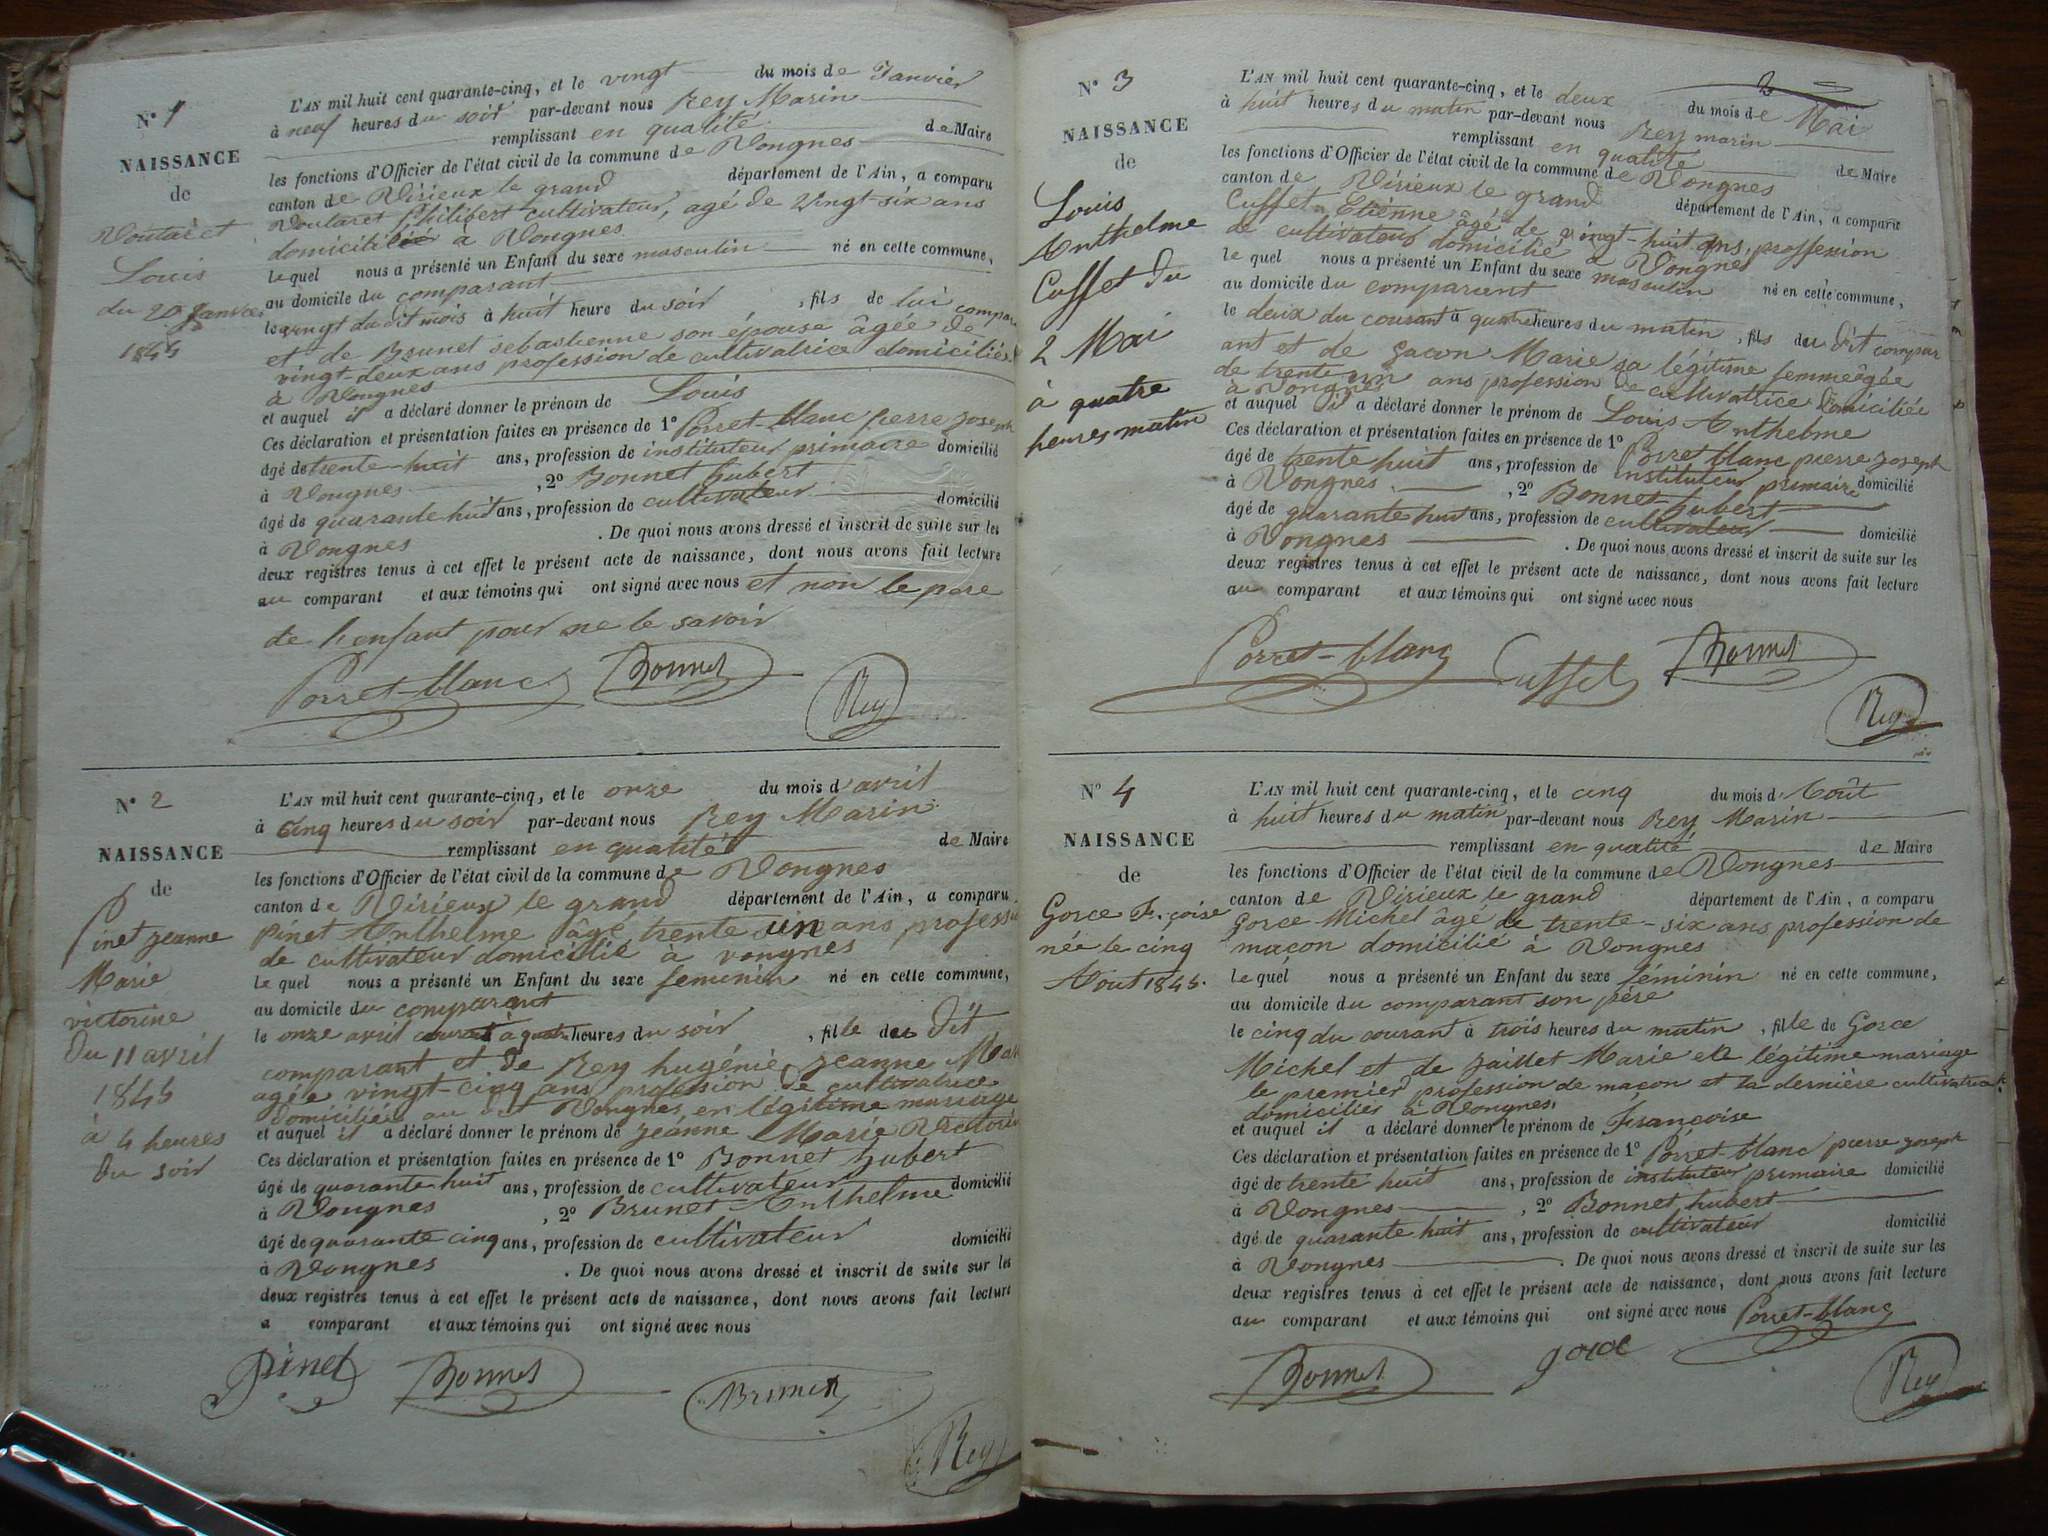 N° 1
NAISSANCE
de
Voutaret
Louis
du 20 Janvier
1845
L'AN mil huit cent quarante-cinq, et le vingt du mois de Janvier
à neuf heures du soir par-devant nous Rey Marin
remplissant en qualité de Maire
les fonctions d'Officier de l'état civil de la commune de Vongnes
canton de Virieux le grand département de l'Ain, a comparu
Voutaret Philibert cultivateur, agé de Vingt-six ans
domicilié à Vongnes
lequel nous a présenté un Enfant du sexe masculin né en cette commune,
au domicile du comparant
le vingt du dit mois à huit heure du soir, fils de lui compar
et de Brunet sebastienne son épouse âgée de
vingt-deux ans profession de cultivatrice domiciliés
à Vongnes
et auquel il a déclaré donner le prénom de Louis
Ces déclaration et présentation faites en présence de 1° Porret-blanc pierre Joseph
âgé de trente-huit ans, profession de instituteur primaire domicilié
à Vongnes, 2° Bonnet hubert
âgé de quarante huit ans, profession de cultivateur domicilié
à Vongnes. De quoi nous avons dressé et inscrit de suite sur les
deux registres tenus à cet effet le présent acte de naissance, dont nous avons fait lecture
au comparant et aux témoins qui ont signé avec nous et non le pere
de l'enfant pour ne le savoir
Porret-blanc Bonnet
Rey
N° 2
NAISSANCE
de
Pinet jeanne
Marie
victorine
Du 11 avril
1845
à 4 heures
Du soir
L'AN mil huit cent quarante-cinq, et le onze du mois d'avril
à Cinq heures du soir par-devant nous Rey Marin
remplissant en qualité de Maire
les fonctions d'Officier de l'état civil de la commune de Vongnes
canton de Virieux le grand département de l'Ain, a comparu
Pinet Anthelme âgé trente un ans professi
de cultivateur domicilié à vongnes
lequel nous a présenté un Enfant du sexe feminin né en cette commune,
au domicile du comparant
le onze avril courant à quatre heures du soir, fille du Dit
comparant et de Rey hugénie jeanne Mar
agée vingt-cinq ans profession de cultivatrice
domiciliée au dit Vongnes, en légitime mariage
et auquel il a déclaré donner le prénom de jeanne Marie Victorin
Ces déclaration et présentation faites en présence de 1° Bonnet hubert
âgé de quarante huit ans, profession de cultivateur domicilié
à Vongnes, 2° Brunet Anthelme
âgé de quarante cinq ans, profession de cultivateur domicilié
à Vongnes. De quoi nous avons dressé et inscrit de suite sur les
deux registres tenus à cet effet le présent acte de naissance, dont nous avons fait lecture
a comparant et aux témoins qui ont signé avec nous
Pinet Bonnet Brunet
Rey
N° 3
NAISSANCE
de
Louis
Anthelme
Cuffet du
2 Mai
à quatre
heures matin
L'AN mil huit cent quarante-cinq, et le deux du mois de Mai
à huit heures du matin par-devant nous Rey marin
remplissant en qualité de Maire
les fonctions d'Officier de l'état civil de la commune de Vongnes
canton de Virieux le grand département de l'Ain, a comparu
Cuffet Etiénne âgé de vingt-huit ans, proffession
de cultivateur domicilié à Vongnes
lequel nous a présenté un Enfant du sexe masculin né en cette commune,
au domicile du comparant
le deux du courant à quatre heures du matin, fils du dit compar
ant et de Gacon Marie sa légitime femme âgée
de trente un ans profession de cultivatrice domiciliée
à Vongnes
et auquel il a déclaré donner le prénom de Louis Anthelme
Ces déclaration et présentation faites en présence de 1° Porret blanc pierre joseph
âgé de trente huit ans, profession de instituteur primaire domicilié
à Vongnes, 2° Bonnet hubert
âgé de quarante huit ans, profession de cultivateur domicilié
à Vongnes. De quoi nous avons dressé et inscrit de suite sur les
deux registres tenus à cet effet le présent acte de naissance, dont nous avons fait lecture
au comparant et aux témoins qui ont signé avec nous
Porret-blanc Cuffet Bonnet
Rey
N° 4
NAISSANCE
de
Gorce F.çoise
née le cinq
Aout 1845.
L'AN mil huit cent quarante-cinq, et le cinq du mois d'Août
à huit heures du matin par-devant nous Rey Marin
remplissant en qualité de Maire
les fonctions d'Officier de l'état civil de la commune de Vongnes
canton de Virieux le grand département de l'Ain, a comparu
Gorce Michel âgé de trente-six ans profession de
maçon domicilié à Vongnes
lequel nous a présenté un Enfant du sexe féminin né en cette commune,
au domicile du comparant son père
le cinq du courant à trois heures du matin, fille de Gorce
Michel et de Jaillet Marie en légitime mariage
le premier profession de maçon et la dernière cultivatrice
domiciliés à Vongnes.
et auquel il a déclaré donner le prénom de Françoise
Ces déclaration et présentation faites en présence de 1° Porret-blanc pierre joseph
âgé de trente huit ans, profession de instituteur primaire domicilié
à Vongnes, 2° Bonnet hubert
âgé de quarante huit ans, profession de cultivateur domicilié
à Vongnes. De quoi nous avons dressé et inscrit de suite sur les
deux registres tenus à cet effet le présent acte de naissance, dont nous avons fait lecture
au comparant et aux témoins qui ont signé avec nous Porret-blanc
Bonnet gorce
Rey